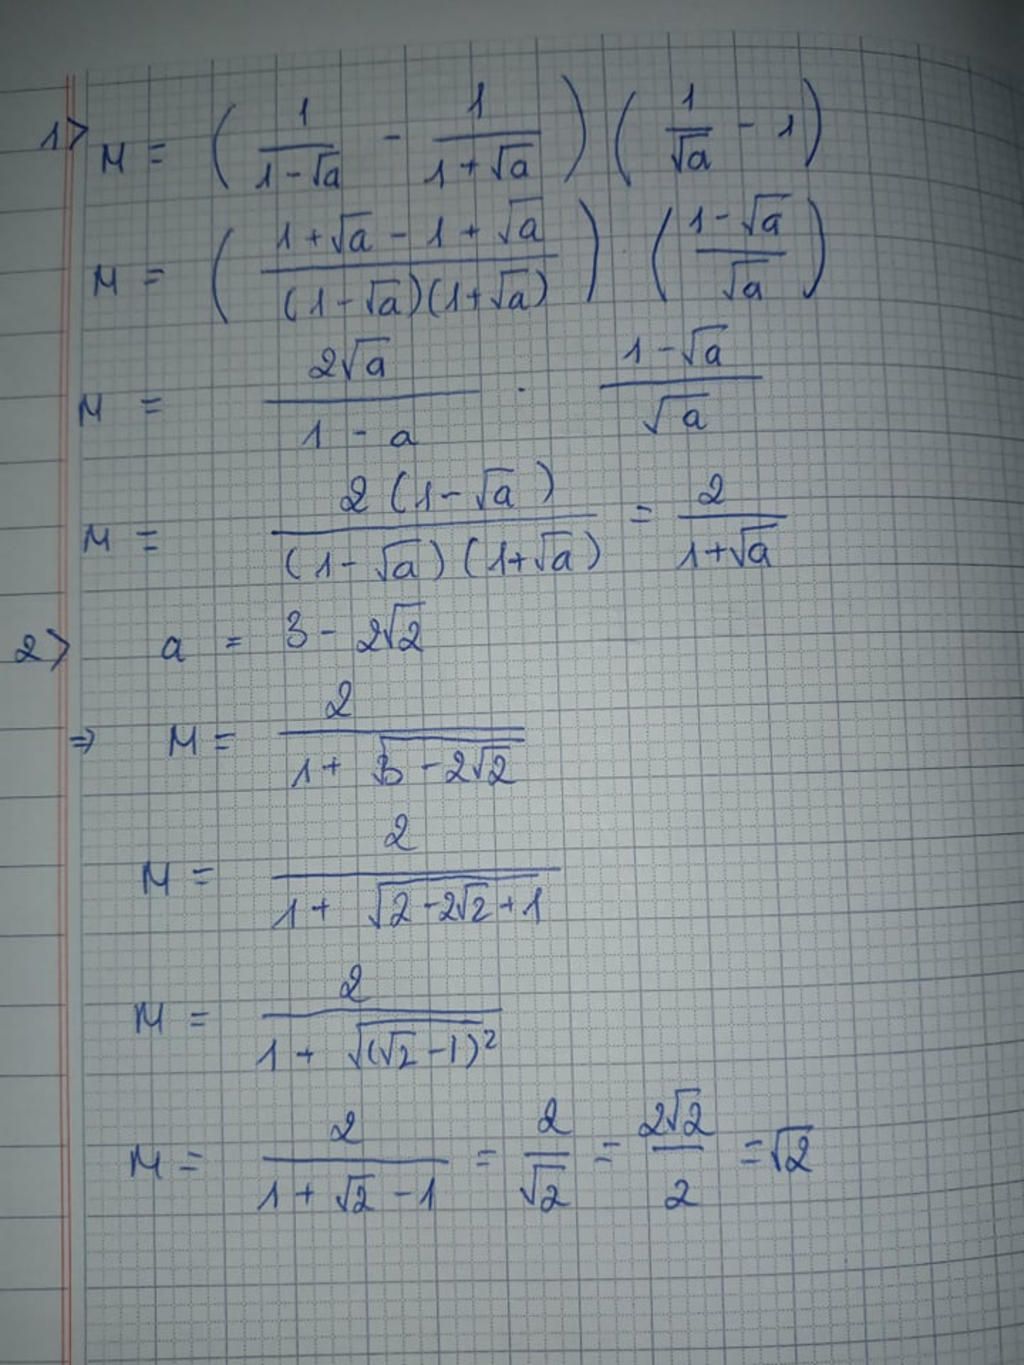 1> M = ( 1/(1-√a) - 1/(1+√a) ) ( 1/√a - 1 )
M = ( (1+√a - 1 + √a)/((1-√a)(1+√a)) ) · ( (1-√a)/√a )
M = 2√a/(1 - a) · (1-√a)/√a
M = 2(1-√a)/((1-√a)(1+√a)) = 2/(1+√a)
2> a = 3 - 2√2
⇒ M = 2/(1 + √(3 - 2√2))
M = 2/(1 + √(2-2√2+1))
M = 2/(1 + √((√2-1)²))
M = 2/(1 + √2 - 1) = 2/√2 = 2√2/2 = √2